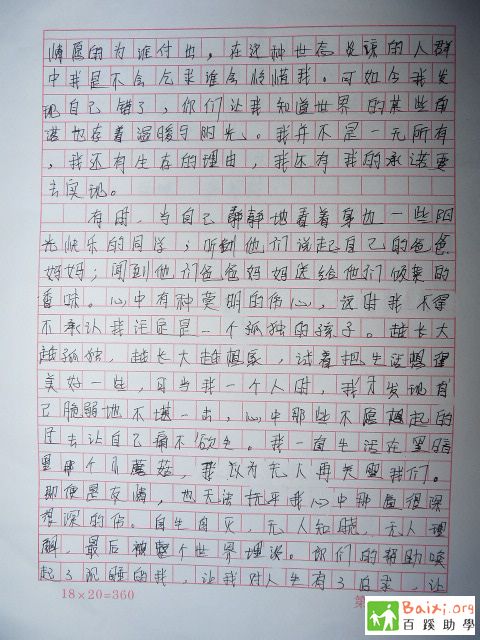 情愿的为谁付出。在这种世态炎凉的人群
中我是不会乞求谁会怜惜我。可如今我发
现自己错了，你们让我知道世界的某些角
落也存在着温暖与阳光。我并不是一无所有
，我还有生存的理由，我还有我的承诺要
去实现。
有时，当自己静静地看着身边一些阳
光快乐的同学；听到他们说起自己的爸爸
妈妈；闻到他们爸爸妈妈送给他们饭菜的
香味。心中有种莫明的伤心，这时我不得
不承认我注定是一个孤独的孩子。越长大
越孤独，越长大越想家，试着把生活想理
美好一些，可当我一个人时，我才发现自
己脆弱地不堪一击，心中那些不愿想起的
过去让自己痛不欲生。我一直生活在黑暗
里那个小蘑菇，我以为无人再关爱我们。
即使是友情，也无法抚平我心中那道很深
很深的伤。自生自灭，无人知晓，无人理
睬，最后被整个世界埋没。你们的帮助唤
起了沉睡的我，让我对人生有了追求，让
18×20=360
第
Baixi.org
百蹊助學